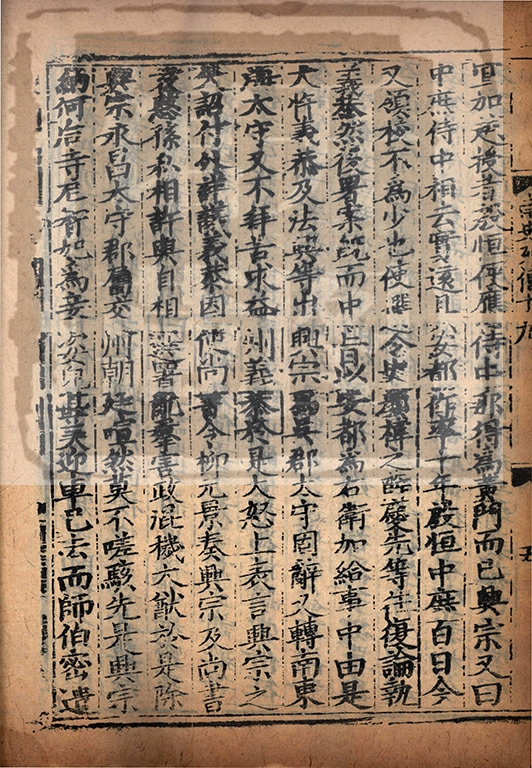 宜加超授者殷恒便應侍中那得為黃門而已興宗又曰
中庶侍中相去實遠且安都作率十年殷恒中庶百日今
又領校不為少也使選令史顏禕之薛慶先等往復論執
義恭然後署案既而中旨以安都為右衛加給事中由是
大忤義恭及法興等出興宗為吳郡太守固辭又轉南東
海太守又不拜苦求益州義恭於是大怒上表言興宗之
詔付外詳議義恭因使尚書令柳元景奏興宗及尚書
袁愍孫私相許與自相選署亂羣害政混穢大猷於是除
興宗永昌太守郡屬交州朝廷喧然莫不嗟駭先是興宗
納何冶寺尼智妃為妾姿皃甚美迎車已去而師伯密遣